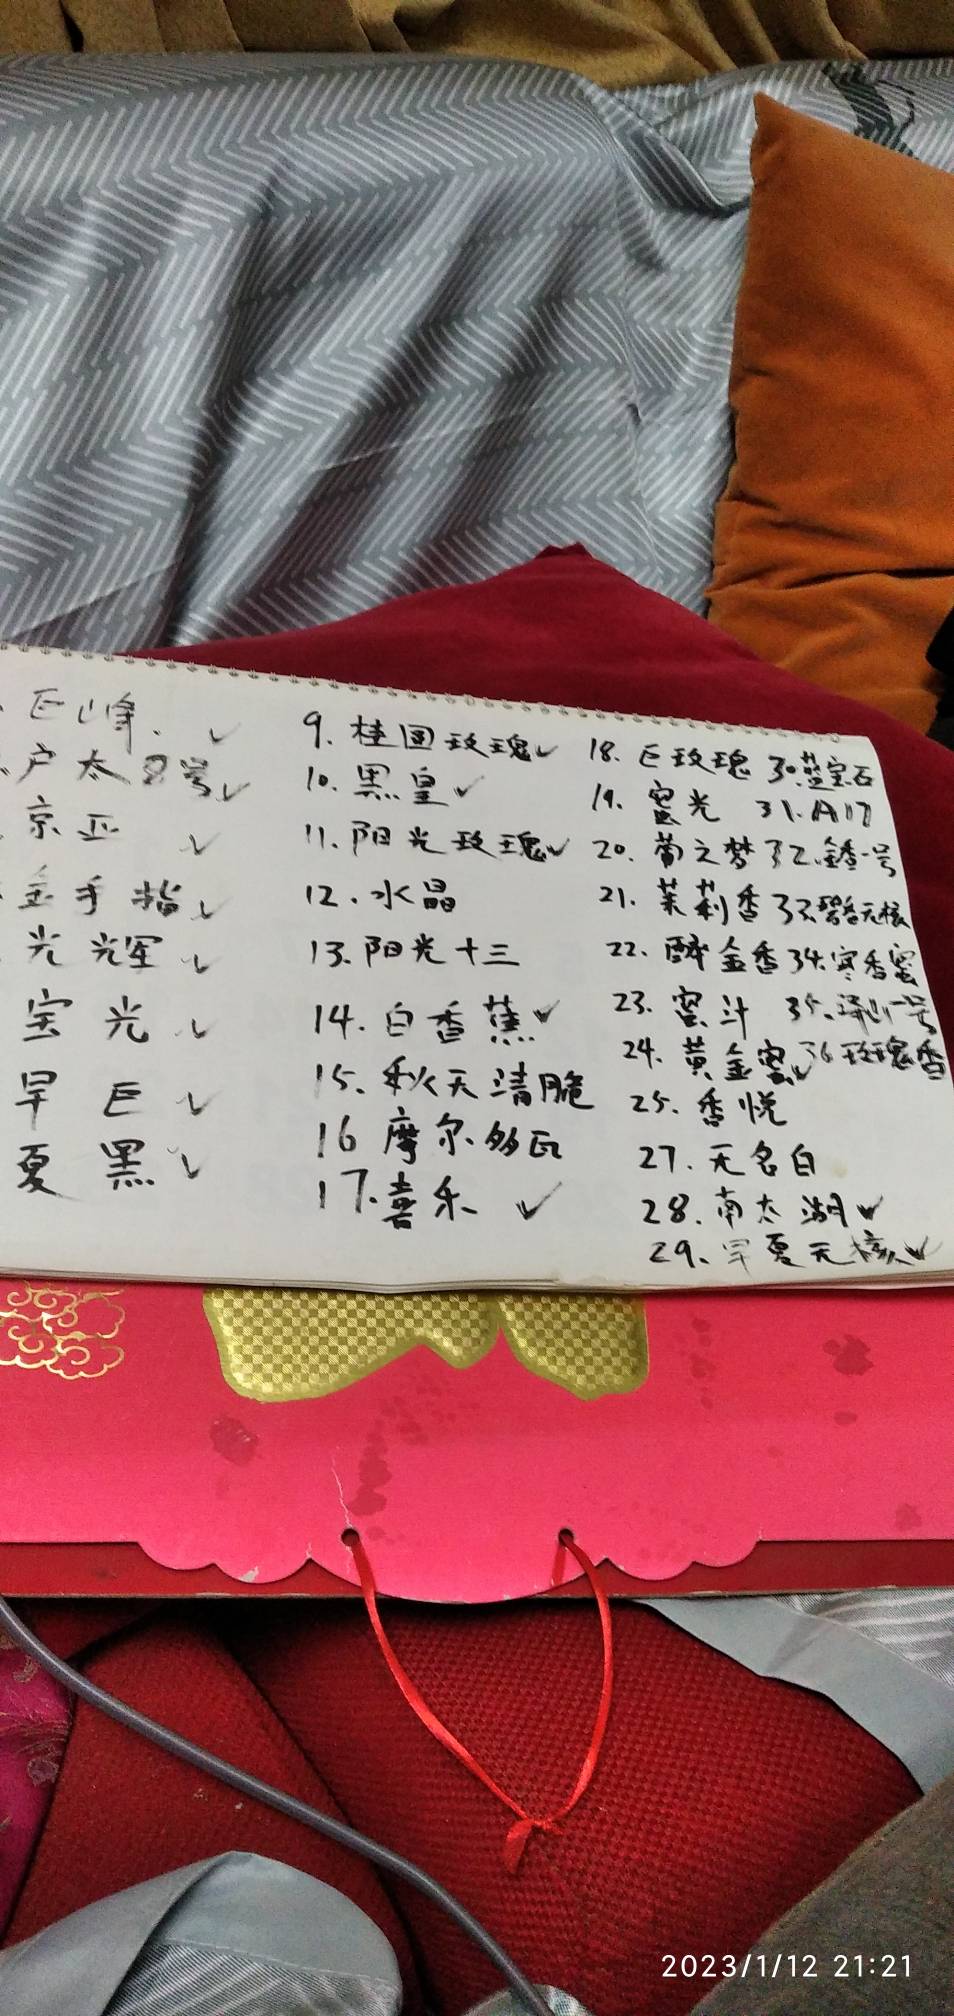 巨峰. ✓
户太8号 ✓
京亚 ✓
金手指 ✓
光辉 ✓
宝光 ✓
早巨 ✓
夏黑 ✓
9. 桂圆玫瑰 ✓
10. 黑皇 ✓
11. 阳光玫瑰 ✓
12. 水晶
13. 阳光十三
14. 白香蕉 ✓
15. 秋天清脆
16 摩尔多瓦
17. 喜乐 ✓
18. 巨玫瑰 30. 蓝宝石
19. 蜜光 31. A17
20. 葡之梦 32. 鑫香一号
21. 茉莉香 33. 碧香无核
22. 醉金香 34. 寒香蜜
23. 蜜汁 35. 泽山一号
24. 黄金蜜 ✓ 36 玫瑰香
25. 香悦
27. 无名白
28. 南太湖 ✓
29. 早夏无核 ✓
2023/1/12 21:21